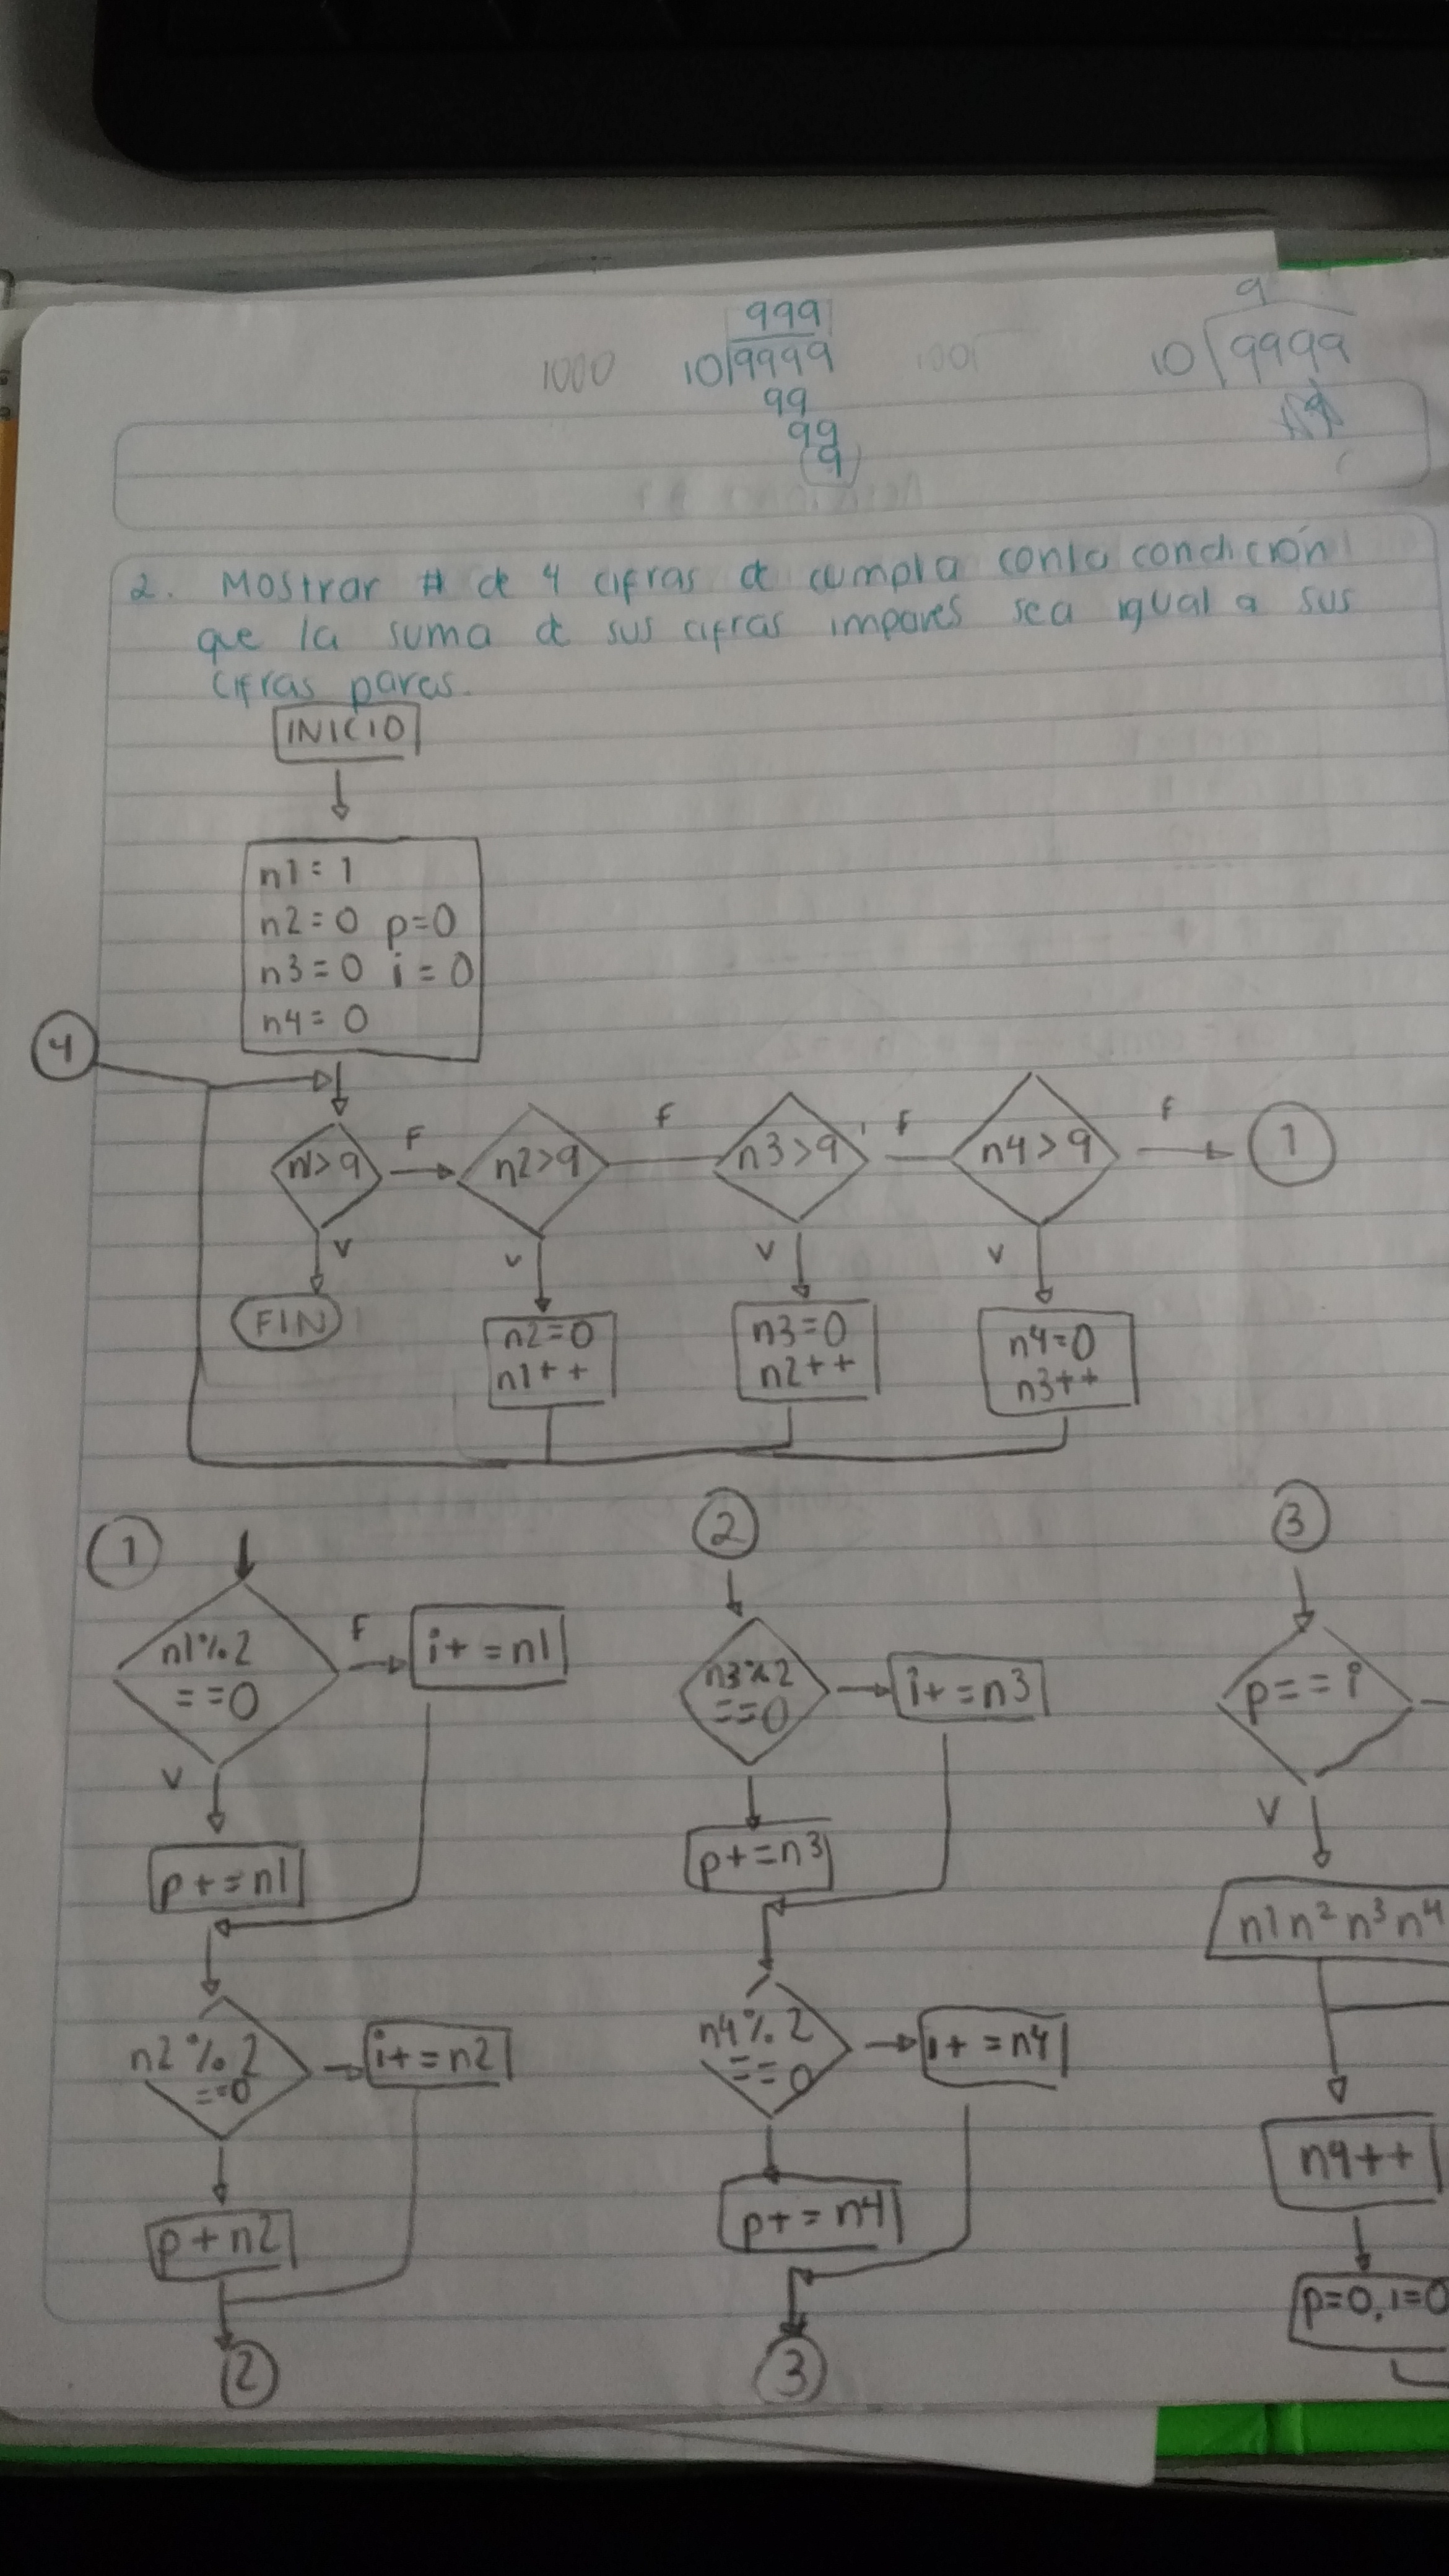 999
9
1000
10 9999
1001
10 9999
99
99
9
2. Mostrar # de 4 cifras d cumpla con la condición
que la suma d sus cifras impares sea igual a sus
cifras pares.
INICIO
n1 = 1
n2 = 0 p=0
n3 = 0 i = 0
n4 = 0
4
n1>9
F
n2>9
f
n3>9
f
n4>9
f
1
V
V
V
V
FIN
n2=0
n1++
n3=0
n2++
n4=0
n3++
1
n1%2
==0
f
i+=n1
V
p+=n1
n2%2
==0
i+=n2
p+n2
2
2
n3%2
==0
i+=n3
p+=n3
n4%2
==0
i+=n4
p+=n4
3
3
p==i
V
n1n2n3n4
n4++
p=0, i=0